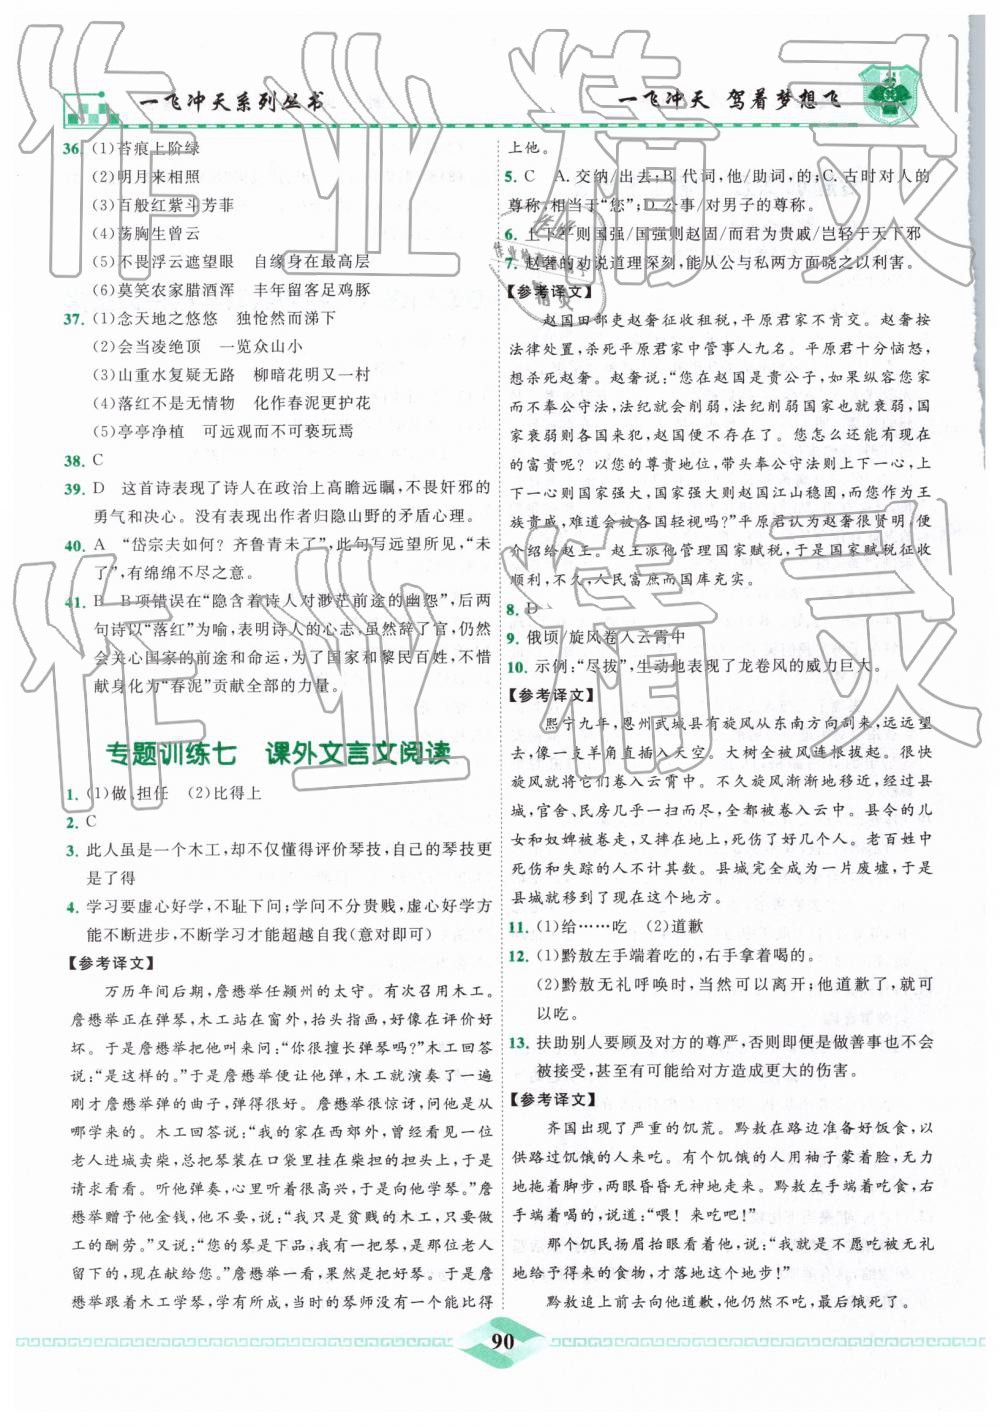 一飞冲天系列丛书
一飞冲天 驾着梦想飞
36 (1)苔痕上阶绿
(2)明月来相照
(3)百般红紫斗芳菲
(4)荡胸生曾云
(5)不畏浮云遮望眼 自缘身在最高层
(6)莫笑农家腊酒浑 丰年留客足鸡豚
37. (1)念天地之悠悠 独怆然而涕下
(2)会当凌绝顶 一览众山小
(3)山重水复疑无路 柳暗花明又一村
(4)落红不是无情物 化作春泥更护花
(5)亭亭净植 可远观而不可亵玩焉
38. C
39. D 这首诗表现了诗人在政治上高瞻远瞩,不畏奸邪的
勇气和决心。没有表现出作者归隐山野的矛盾心理。
40. A “岱宗夫如何?齐鲁青未了”,此句写远望所见,“未
了”,有绵绵不尽之意。
41. B B项错误在“隐含着诗人对渺茫前途的幽怨”,后两
句诗以“落红”为喻,表明诗人的心志,虽然辞了官,仍然
会关心国家的前途和命运,为了国家和黎民百姓,不惜
献身化为“春泥”贡献全部的力量。
专题训练七 课外文言文阅读
1. (1)做、担任 (2)比得上
2. C
3. 此人虽是一个木工,却不仅懂得评价琴技,自己的琴技更
是了得
4. 学习要虚心好学,不耻下问;学问不分贵贱,虚心好学方
能不断进步,不断学习才能超越自我(意对即可)
【参考译文】
万历年间后期,詹懋举任颍州的太守。有次召用木工。
詹懋举正在弹琴,木工站在窗外,抬头指画,好像在评价好
坏。于是詹懋举把他叫来问:“你很擅长弹琴吗?”木工回答
说:“是这样的。”于是詹懋举便让他弹,木工就演奏了一遍
刚才詹懋举弹的曲子,弹得很好。詹懋举很惊讶,问他是从
哪学来的。木工回答说:“我的家在西郊外,曾经看见一位
老人进城卖柴,总把琴装在口袋里挂在柴担的担头上,于是
请求看看。听他弹奏,心里听着很高兴,于是向他学琴。”詹
懋举赠予他金钱,他不要,说:“我只是贫贱的木工,只要做
工的酬劳。”又说:“您的琴是下品,我有一把琴,是那位老人
留下的,现在献给您。”詹懋举一看,果然是把好琴。于是詹
懋举跟着木工学琴,学有所成,当时的琴师没有一个能比得
上他。
5. C A.交纳/出去;B.代词,他/助词,的;C.古时对人的
尊称,相当于“您”;D.公事/对男子的尊称。
6. 上下平则国强/国强则赵固/而君为贵戚/岂轻于天下邪
7. 赵奢的劝说道理深刻,能从公与私两方面晓之以利害。
【参考译文】
赵国田部吏赵奢征收租税,平原君家不肯交。赵奢按
法律处置,杀死平原君家中管事人九名。平原君十分恼怒,
想杀死赵奢。赵奢说:“您在赵国是贵公子,如果纵容您家
而不奉公守法,法纪就会削弱,法纪削弱国家也就衰弱,国
家衰弱则各国来犯,赵国便不存在了。您怎么还能有现在
的富贵呢?以您的尊贵地位,带头奉公守法则上下一心,上
下一心则国家强大,国家强大则赵国江山稳固,而您作为王
族贵戚,难道会被各国轻视吗?”平原君认为赵奢很贤明,便
介绍给赵王。赵王派他管理国家赋税,于是国家赋税征收
顺利,不久,人民富庶而国库充实。
8. D
9. 俄顷/旋风卷入云霄中
10. 示例:“尽拔”,生动地表现了龙卷风的威力巨大。
【参考译文】
熙宁九年,恩州武城县有旋风从东南方向刮来,远远望
去,像一支羊角直插入天空。大树全被风连根拔起。很快
旋风就将它们卷入云霄中。不久旋风渐渐地移近,经过县
城,官舍、民房几乎一扫而尽,全都被卷入云中。县令的儿
女和奴婢被卷走,又摔在地上,死伤了好几个人。老百姓中
死伤和失踪的人不计其数。县城完全成为一片废墟,于是
县城就移到了现在这个地方。
11. (1)给……吃 (2)道歉
12. (1)黔敖左手端着吃的,右手拿着喝的。
(2)黔敖无礼呼唤时,当然可以离开;他道歉了,就可
以吃。
13. 扶助别人要顾及对方的尊严,否则即便是做善事也不会
被接受,甚至有可能给对方造成更大的伤害。
【参考译文】
齐国出现了严重的饥荒。黔敖在路边准备好饭食,以
供路过饥饿的人来吃。有个饥饿的人用袖子蒙着脸,无力
地拖着脚步,两眼昏昏无神地走来。黔敖左手端着吃食,右
手端着喝的,说道:“喂!来吃吧!”
那个饥民扬眉抬眼看着他,说:“我就是不愿吃被无礼
地给予得来的食物,才落地这个地步!”
黔敖追上前去向他道歉,他仍然不吃,最后饿死了。
90
作业精灵
作业精灵